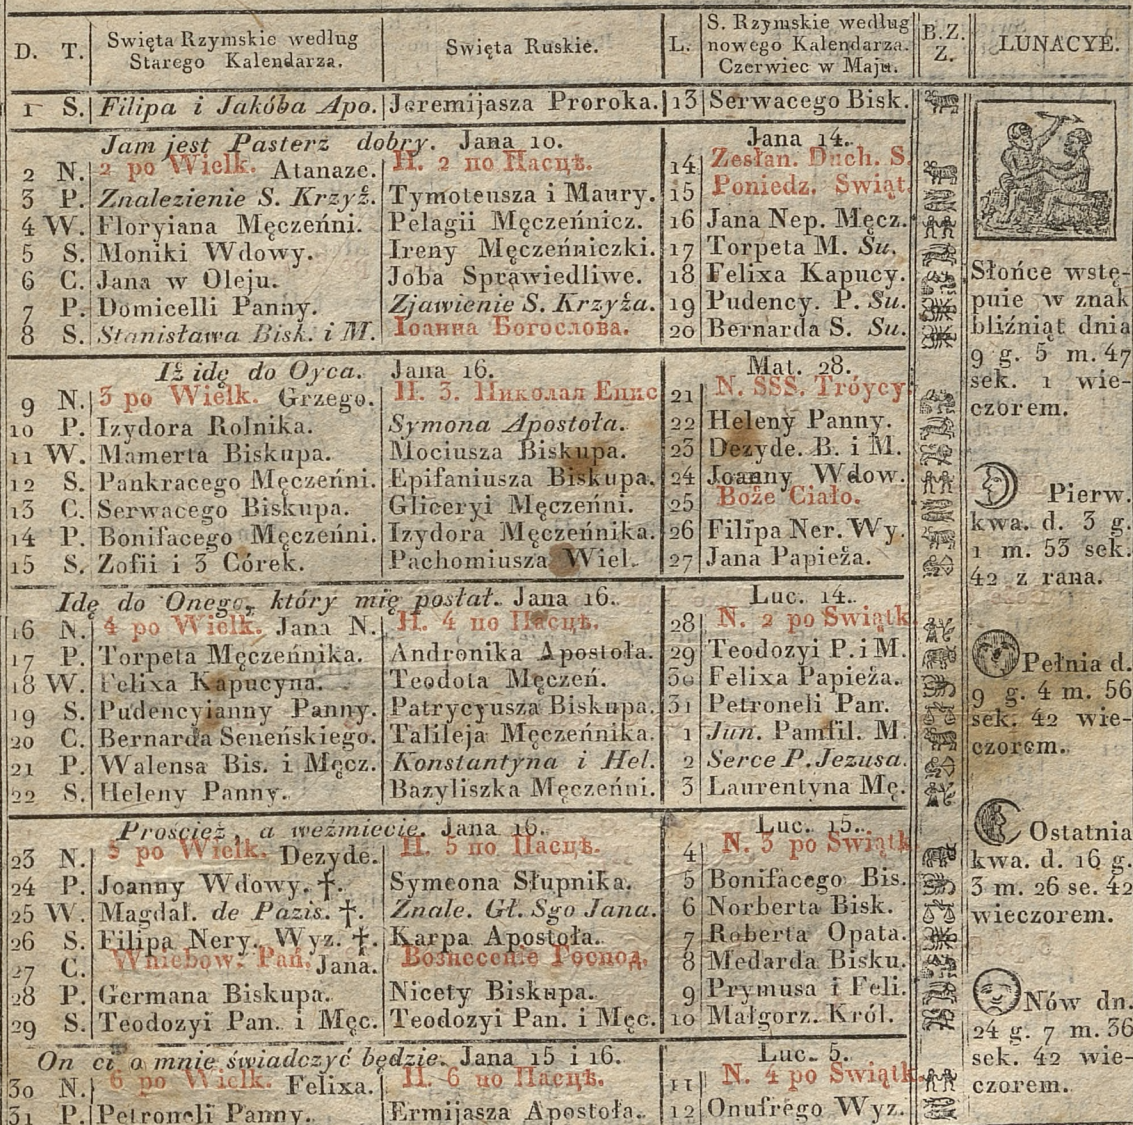 D. T. Swięta Rzymskie według Starego Kalendarza. Swięta Ruskie. L. S. Rzymskie według nowego Kalendarza. Czerwiec w Maju. B.Z. Z. LUNACYE.
1 S. Filipa i Jakóba Apo. Jeremijasza Proroka. 13 Serwacego Bisk.
Jam jest Pasterz dobry. Jana 10. Jana 14.
2 N. 2 po Wielk. Atanaze. Н. 2 по Пасцѣ. 14 Zesłan. Duch. S.
3 P. Znalezienie S. Krzyż. Tymoteusza i Maury. 15 Poniedz. Swiąt.
4 W. Floryiana Męczeńni. Pelagii Męczeńnicz. 16 Jana Nep. Męcz.
5 S. Moniki Wdowy. Ireny Męczeńniczki. 17 Torpeta M. Su.
6 C. Jana w Oleju. Joba Sprawiedliwe. 18 Felixa Kapucy.
7 P. Domicelli Panny. Zjawienie S. Krzyża. 19 Pudency. P. Su.
8 S. Stanisława Bisk. i M. Іоанна Богослова. 20 Bernarda S. Su.
Iż idę do Oyca. Jana 16. Mat. 28.
9 N. 3 po Wielk. Grzego. Н. 3. Николая Епис 21 N. SSS. Tróycy
10 P. Izydora Rolnika. Symona Apostoła. 22 Heleny Panny.
11 W. Mamerta Biskupa. Mociusza Biskupa. 23 Dezyde. B. i M.
12 S. Pankracego Męczeńni. Epifaniusza Biskupa. 24 Joanny Wdow.
13 C. Serwacego Biskupa. Gliceryi Męczeńni. 25 Boże Ciało.
14 P. Bonifacego Męczeńni. Izydora Męczeńnika. 26 Filipa Ner. Wy.
15 S. Zofii i 3 Córek. Pachomiusza Wiel. 27 Jana Papieża.
Idę do Onego, który mię posłał. Jana 16. Luc. 14.
16 N. 4 po Wielk. Jana N. Н. 4 по Пасцѣ. 28 N. 2 po Swiątk
17 P. Torpeta Męczeńnika. Andronika Apostoła. 29 Teodozyi P. i M.
18 W. Felixa Kapucyna. Teodota Męczeń. 30 Felixa Papieża.
19 S. Pudencyianny Panny. Patrycyusza Biskupa. 31 Petroneli Pan.
20 C. Bernarda Seneńskiego. Talileja Męczeńnika. 1 Jun. Pamfil. M.
21 P. Walensa Bis. i Męcz. Konstantyna i Hel. 2 Serce P. Jezusa.
22 S. Heleny Panny. Bazyliszka Męczeńni. 3 Laurentyna Mę.
Proscież, a weźmiecie. Jana 16. Luc. 15.
23 N. 5 po Wielk. Dezyde. Н. 5 по Пасцѣ. 4 N. 3 po Swiątk
24 P. Joanny Wdowy. †. Symeona Słupnika. 5 Bonifacego Bis.
25 W. Magdal. de Pazis. †. Znale. Gł. Sgo Jana. 6 Norberta Bisk.
26 S. Filipa Nery. Wyz. †. Karpa Apostoła. 7 Roberta Opata.
27 C. Wniebow. Pań. Jana. Вознесение Господ. 8 Medarda Bisku.
28 P. Germana Biskupa. Nicety Biskupa. 9 Prymusa i Feli.
29 S. Teodozyi Pan. i Męc. Teodozyi Pan. i Męc. 10 Małgorz. Król.
On ci o mnie świadczyć będzie. Jana 15 i 16. Luc. 5.
30 N. 6 po Wielk. Felixa. Н. 6 по Пасцѣ. 11 N. 4 po Swiątk.
31 P. Petroneli Panny. Ermijasza Apostoła. 12 Onufrego Wyz.
Słońce wstę-
puie w znak
bliźniąt dnia
9 g. 5 m. 47
sek. 1 wie-
czorem.
Pierw.
kwa. d. 3 g.
1 m. 53 sek.
42 z rana.
Pełnia d.
9 g. 4 m. 56
sek. 42 wie-
czorem.
Ostatnia
kwa. d. 16 g.
3 m. 26 se. 42
wieczorem.
Nów dn.
24 g. 7 m. 36
sek. 42 wie-
czorem.